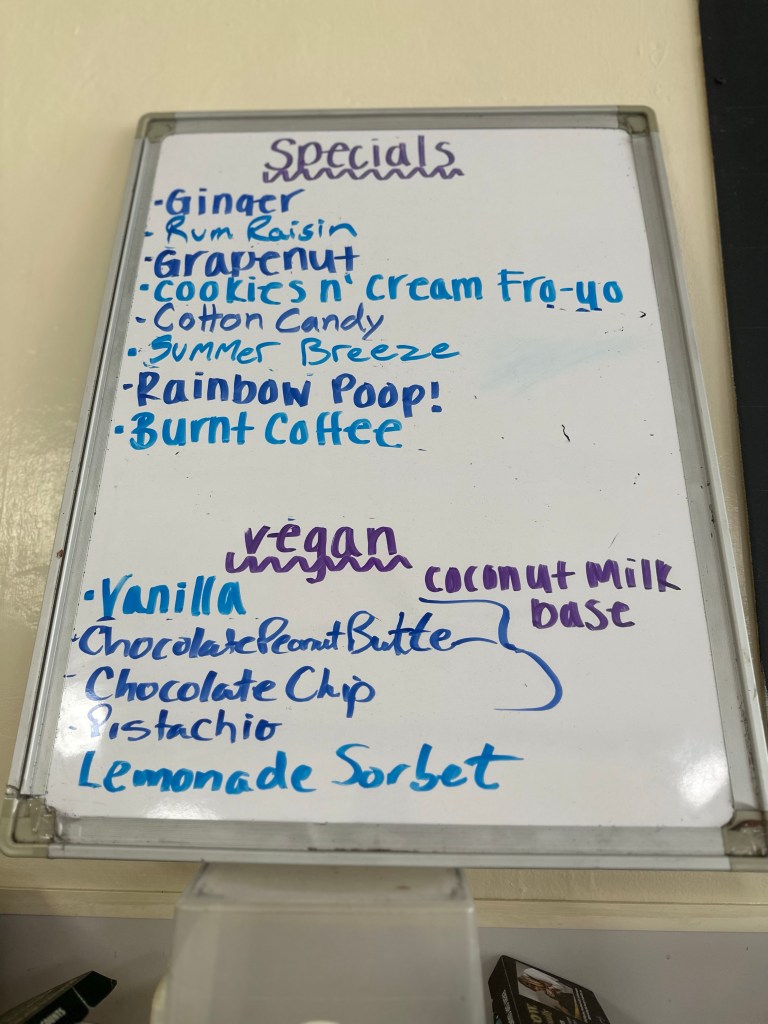 Specials
·Ginger
· Rum Raisin
·Grapenut
·Cookies n' Cream Fro-yo
·Cotton Candy
·Summer Breeze
·Rainbow Poop!
·Burnt Coffee
vegan
coconut Milk
base
·Vanilla
·Chocolate Peanut Butte
·Chocolate Chip
·Pistachio
Lemonade Sorbet